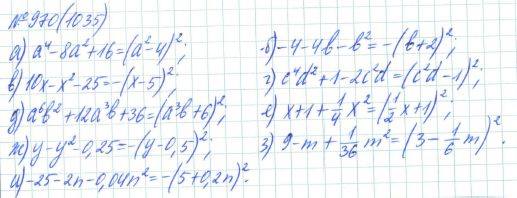 №970(1035)
а) a⁴-8a²+16=(a²-4)²; б)-4-4b-b²=-(b+2)²;
в) 10x-x²-25=-(x-5)²; г) c⁴d²+1-2c²d=(c²d-1)²;
д) a⁶b²+12a³b+36=(a³b+6)²; е) x+1+1/4 x²=(1/2 x+1)²;
ж) y-y²-0,25=-(y-0,5)²; з) 9-m+1/36 m²=(3-1/6 m)².
и)-25-2n-0,04n²=-(5+0,2n)².